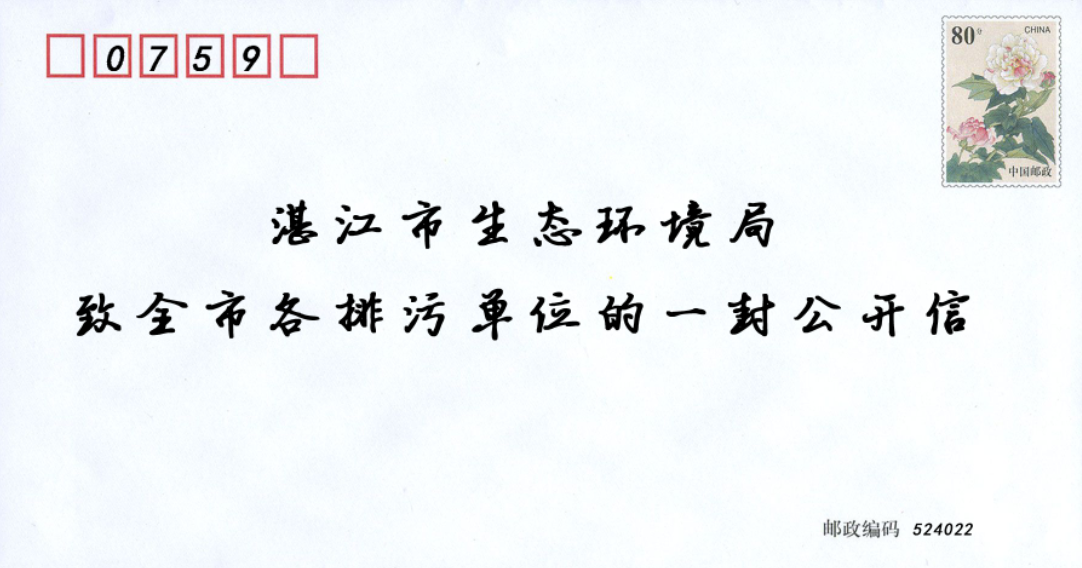 0759
80分 CHINA
中国邮政
湛江市生态环境局
致全市各排污单位的一封公开信
邮政编码 524022